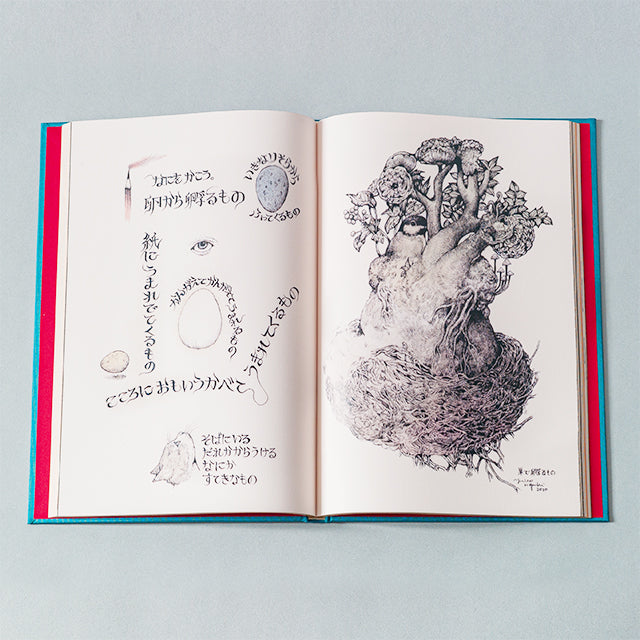 なにをかこう。
卵から孵るもの
いきなりそらから
ふってくるもの
紙にうまれでてくるもの
かんがえてかんがえてうまれるもの
こころにおもいうかべて
うまれてくるもの
そばにいる
だれかからうける
なにか
すてきなもの
巣で孵るもの
2020